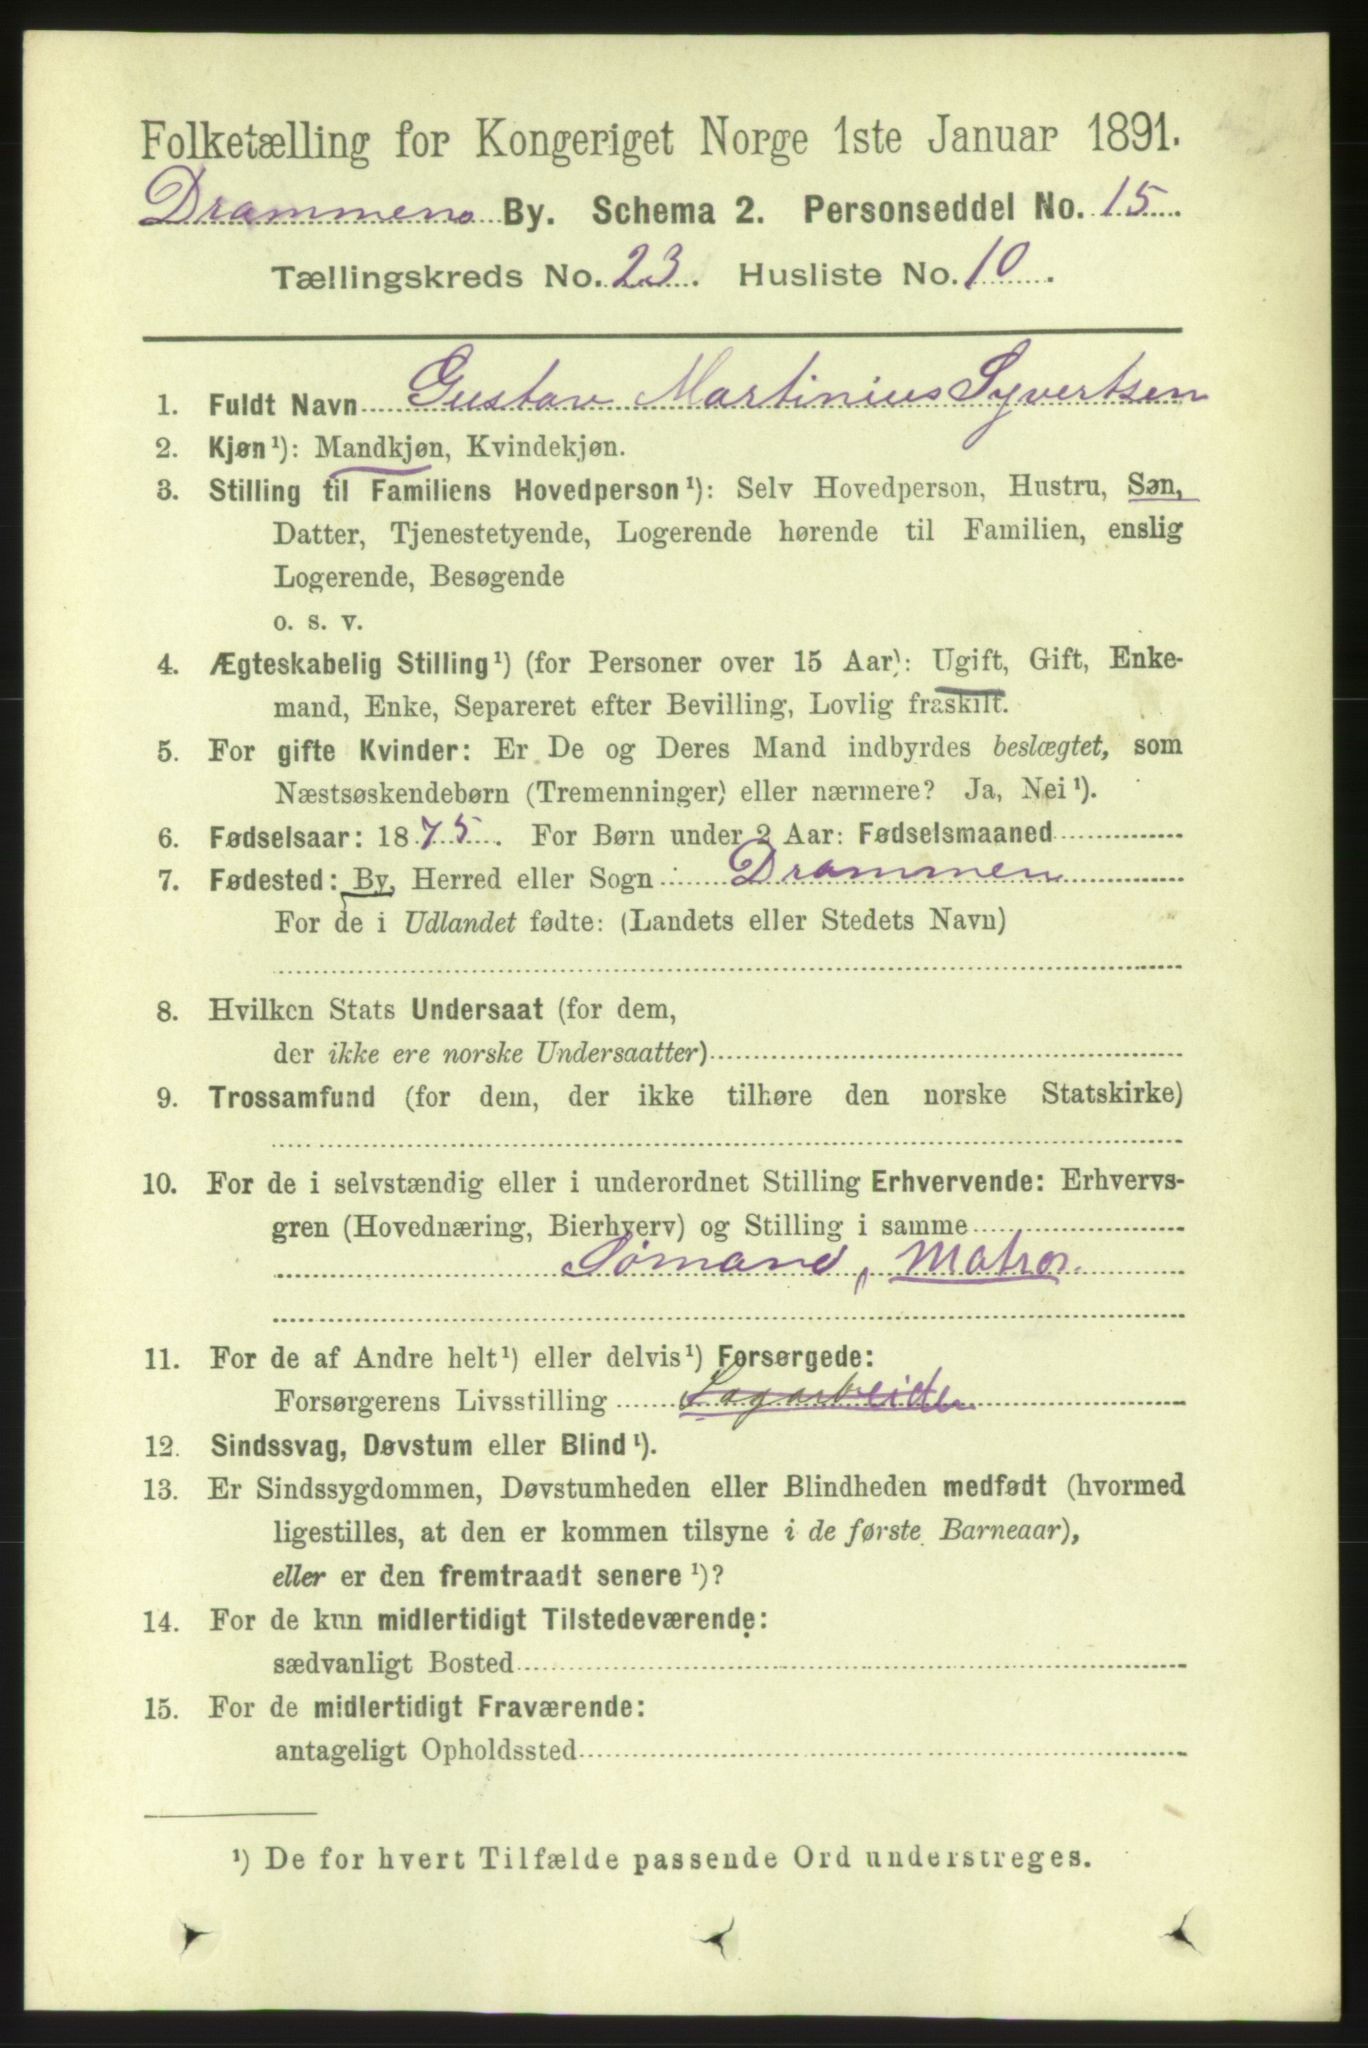 Folketælling for Kongeriget Norge 1ste Januar 1891.
Drammens By. Schema 2. Personseddel No. 15
Tællingskreds No. 23. Husliste No. 10.
1. Fuldt Navn Gustav Martinius Syvertsen
2. Kjøn¹): Mandkjøn, Kvindekjøn.
3. Stilling til Familiens Hovedperson¹): Selv Hovedperson, Hustru, Søn,
Datter, Tjenestetyende, Logerende hørende til Familien, enslig
Logerende, Besøgende
o. s. v.
4. Ægteskabelig Stilling¹) (for Personer over 15 Aar): Ugift, Gift, Enke-
mand, Enke, Separeret efter Bevilling, Lovlig fraskilt.
5. For gifte Kvinder: Er De og Deres Mand indbyrdes beslægtet, som
Næstsøskendebørn (Tremenninger) eller nærmere? Ja, Nei¹).
6. Fødselsaar: 1875. For Børn under 2 Aar: Fødselsmaaned
7. Fødested: By, Herred eller Sogn Drammen
For de i Udlandet fødte: (Landets eller Stedets Navn)
8. Hvilken Stats Undersaat (for dem,
der ikke ere norske Undersaatter)
9. Trossamfund (for dem, der ikke tilhøre den norske Statskirke)
10. For de i selvstændig eller i underordnet Stilling Erhvervende: Erhvervs-
gren (Hovednæring, Bierhverv) og Stilling i samme
Sømand, Matros.
11. For de af Andre helt¹) eller delvis¹) Forsørgede:
Forsørgerens Livsstilling Sagarbeider
12. Sindssvag, Døvstum eller Blind¹).
13. Er Sindssygdommen, Døvstumheden eller Blindheden medfødt (hvormed
ligestilles, at den er kommen tilsyne i de første Barneaar),
eller er den fremtraadt senere¹)?
14. For de kun midlertidigt Tilstedeværende:
sædvanligt Bosted
15. For de midlertidigt Fraværende:
antageligt Opholdssted
¹) De for hvert Tilfælde passende Ord understreges.